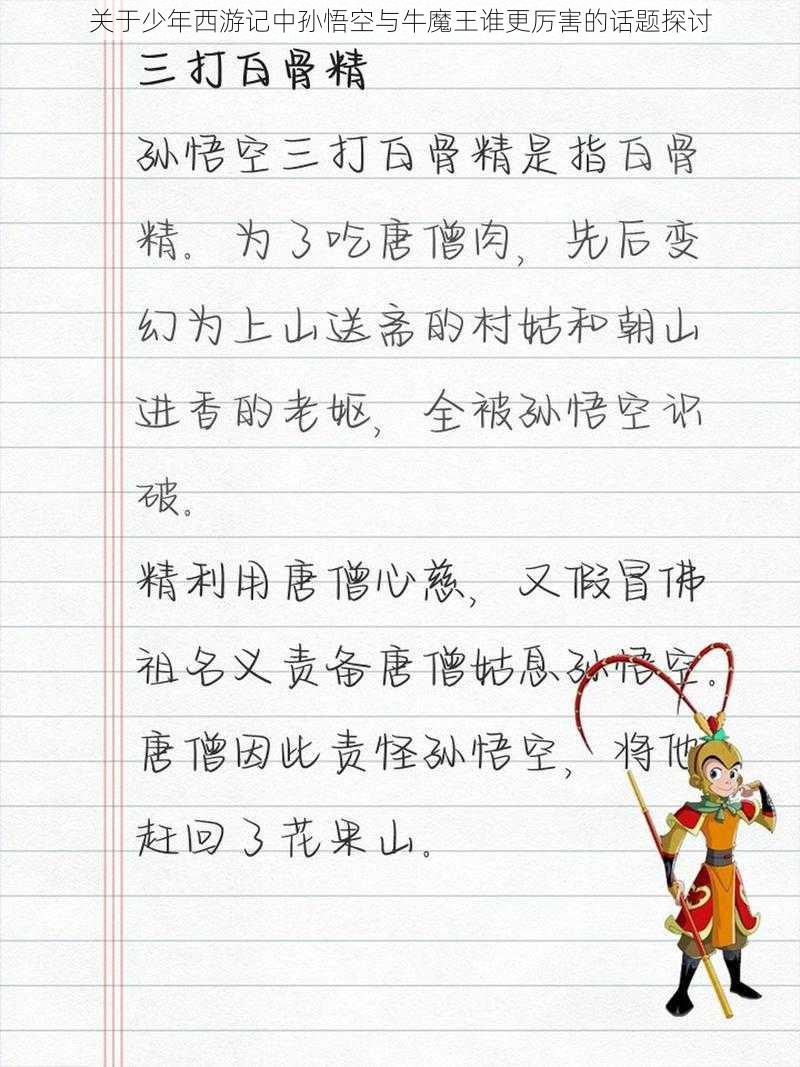 关于少年西游记中孙悟空与牛魔王谁更厉害的话题探讨
三打白骨精
孙悟空三打白骨精是指白骨
精。为了吃唐僧肉，先后变
幻为上山送斋的村姑和朝山
进香的老妪，全被孙悟空识
破。
精利用唐僧心慈，又假冒佛
祖名义责备唐僧姑息孙悟空。
唐僧因此责怪孙悟空，将他
赶回了花果山。